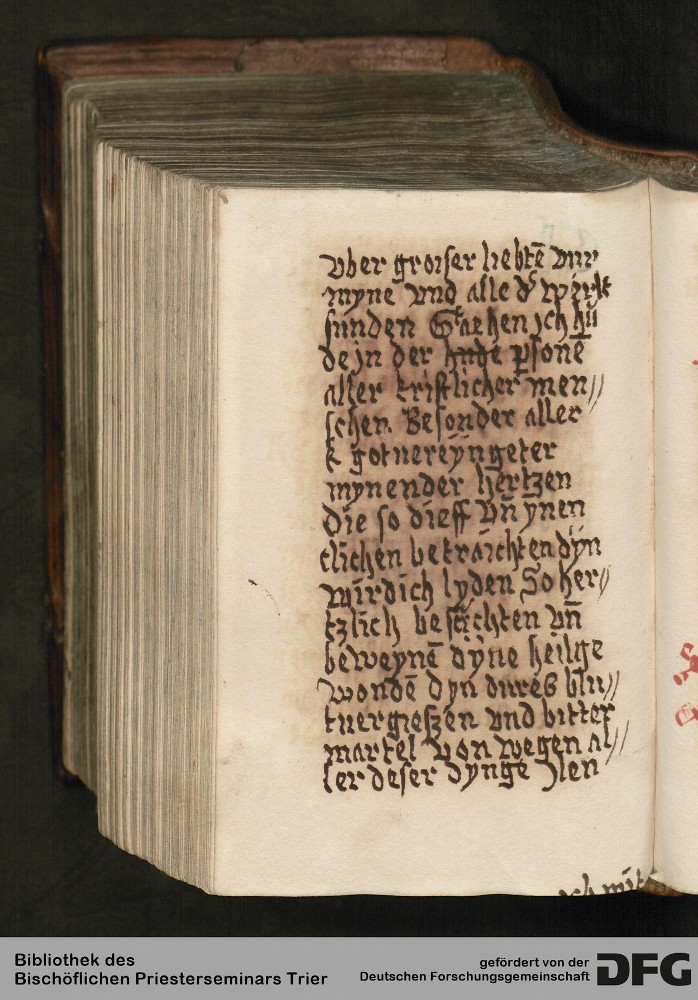 vber groiser liebtē vnr
myne vnd alle d' werlt
sunden Staehen jch hū
de jn der persone
aller kristlicher men//
schen. Besonder aller
k gotuereÿngeter
mynender hertzen
Die so dieff vn̄ ynen
clichen betraichten dÿn
wirdich lyden So her//
tzlich besüchten vn̄
beweynē dÿne heilge
wondē dyn dures blu//
tuergieszen vnd bitter
martel von wegen al//
ler deser dynge Jlen
Bibliothek des
Bischöflichen Priesterseminars Trier
gefördert von der
Deutschen Forschungsgemeinschaft DFG